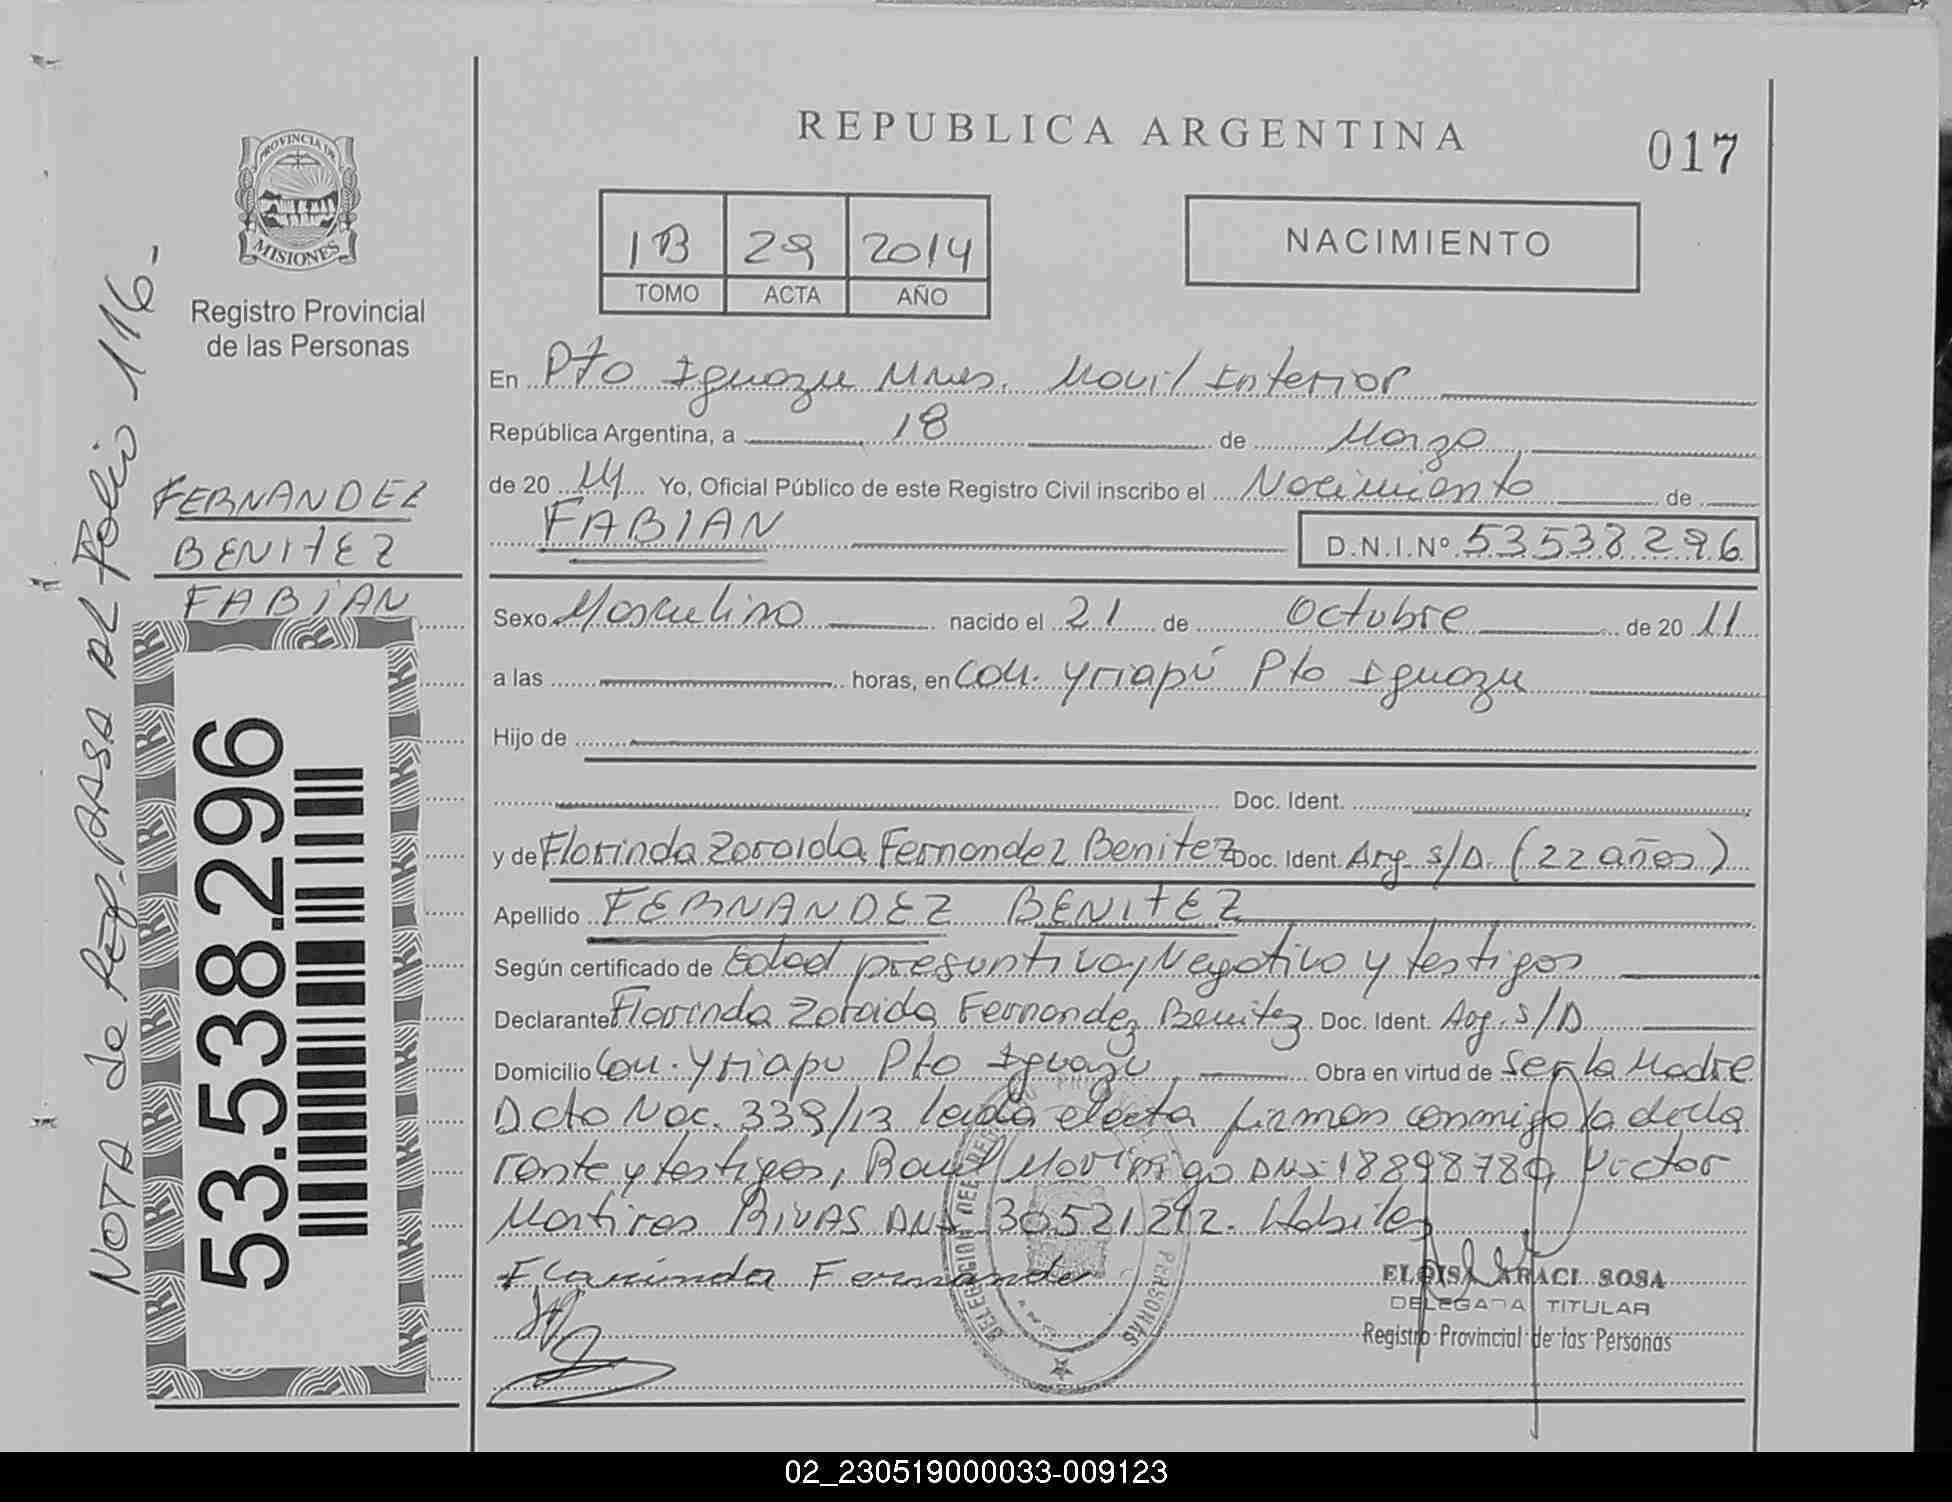 REPUBLICA ARGENTINA
017
PROVINCIA DE
MISIONES
Registro Provincial
de las Personas
1B 29 2014
TOMO ACTA AÑO
NACIMIENTO
En Pto Iguazu Mnes. Movil Interior
República Argentina, a 18 de Marzo
de 20 14 Yo, Oficial Público de este Registro Civil inscribo el Nacimiento de
FABIAN D.N.I.Nº 53538296
FERNANDEZ
BENITEZ
FABIAN
NOTA de Ref. PASA AL Folio 116.-
53.538.296
Sexo Masculino nacido el 21 de Octubre de 20 11
a las horas, en Com. Yriapú Pto Iguazu
Hijo de
Doc. Ident.
y de Florinda Zoraida Fernandez Benitez Doc. Ident. Arg. s/D. (22 años)
Apellido FERNANDEZ BENITEZ
Según certificado de Edad presuntiva, Negativo y testigos
Declarante Florinda Zoraida Fernandez Benitez. Doc. Ident. Arg. s/D
Domicilio Com. Yriapu Pto Iguazu Obra en virtud de ser la Madre
Dcto Nac. 339/13 leida el acta firman conmigo la decla
rante y testigos, Raul Moringo DNI 18898789, Victor
Martires RIVAS DNI 30521212. Habiles
Florinda Fernande
ELOISA ARACI SOSA
DELEGADA TITULAR
Registro Provincial de las Personas
DELEGACION DEL PERSONAS
02_230519000033-009123